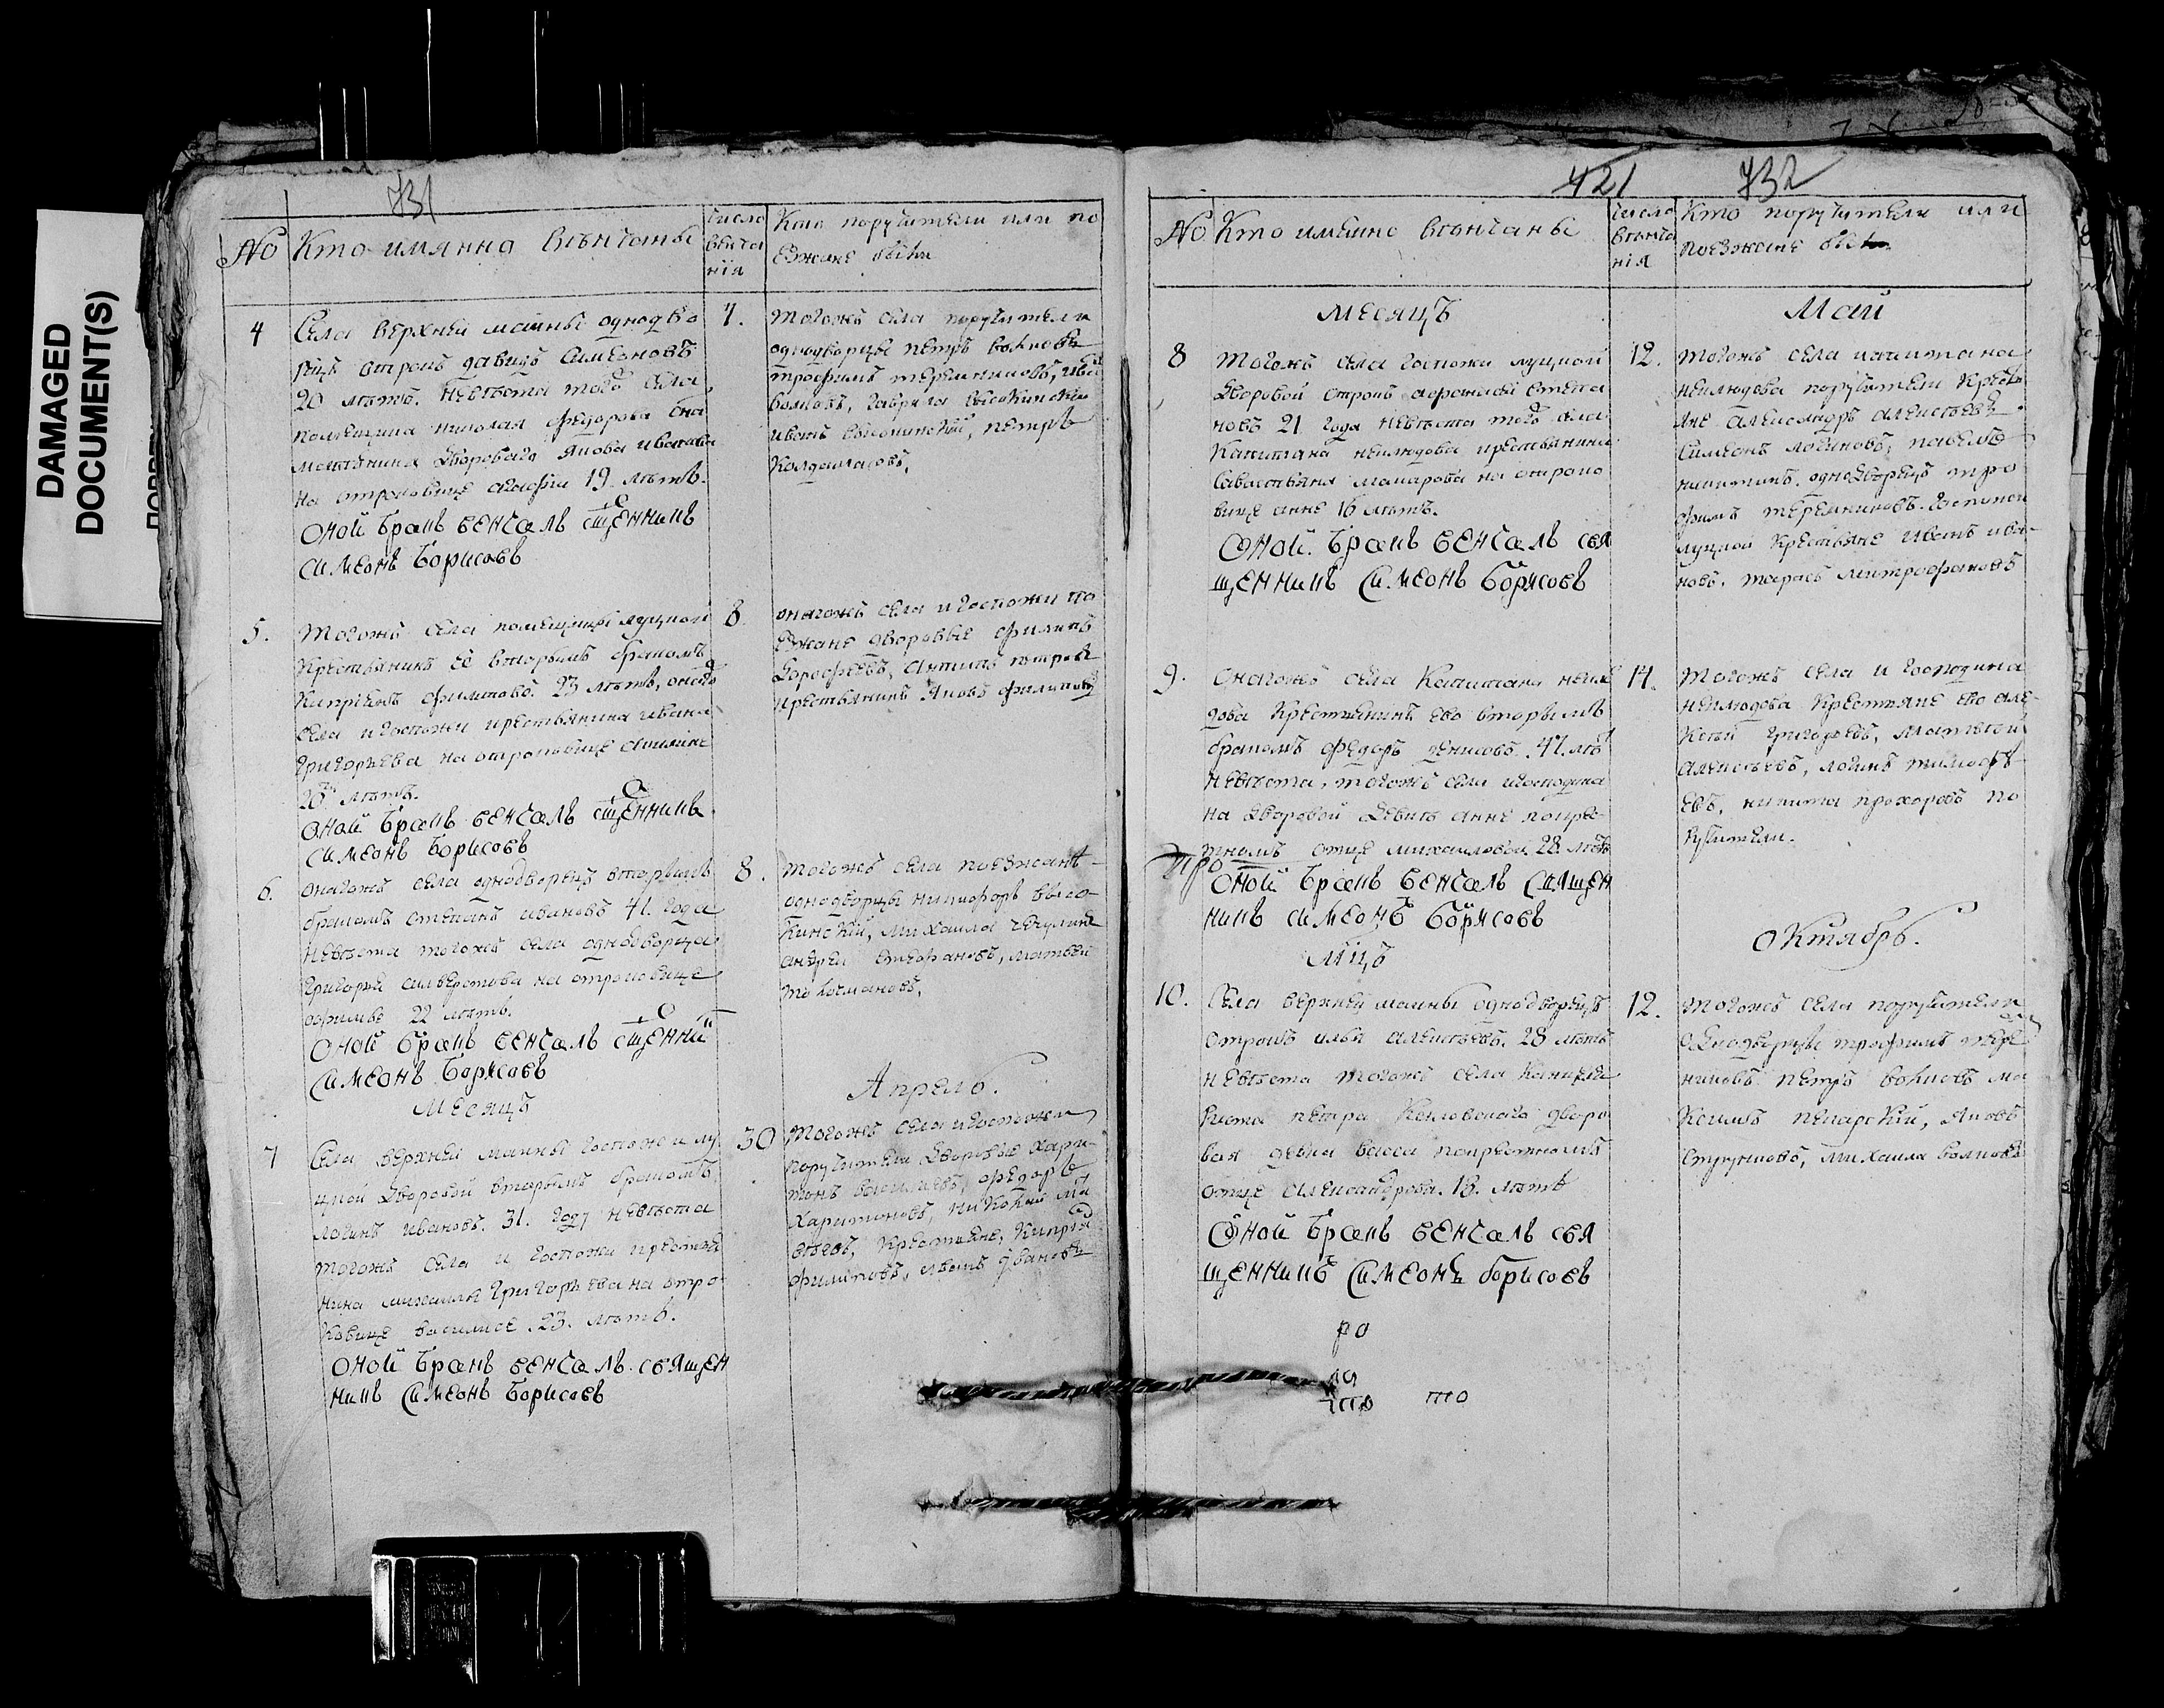 DAMAGED
DOCUMENT(S)
731
No
Кто имянна венчаны
число
венча
нїя
Кто поручители или по
езжане были
4
Села верхней маины однодво
рецъ отрокъ давидъ Симеоновъ
20 летъ. Невеста того села
помещика николая федорова сна
двороваго якова иванова
на отроковице 19 летъ.
Оной бракъ венчалъ сщенникъ
Симеонъ Борисовъ
7.
Тогожъ села поручители
однодворцы петръ волковъ
трофимъ теренниковъ,
волковъ, гаврила высокинской
иванъ высокинский, петръ
5.
Тогожъ села помещицы луцкой
Крестьянинъ ее вторымъ бракомъ
Филиповъ 23 летъ, оного
села и госпожи крестьянина ивана
григорьева на отроковице акилине
20 летъ.
Оной бракъ венчалъ сщенникъ
Симеонъ Борисовъ
8.
онагожъ села и госпожи по
езжане дворовые филипъ
дорофеевъ, антипъ петровъ
крестьянинъ яковъ филиповъ
6.
онагожъ села однодворецъ вторымъ
бракомъ степанъ ивановъ 41. года
невеста тогожъ села однодворца
григорья сильверстова на отроковице
22 летъ.
Оной бракъ венчалъ сщенникъ
Симеонъ Борисовъ
8.
тогожъ села поезжане
однодворцы никифоръ высо-
кинский, михаила чечулинъ
андрей стефановъ, матвей
МЕСЯЦЪ
Апрель.
7
Села верхней маины госпожи лу
цкой дворовой вторымъ бракомъ
логинъ ивановъ. 31. году невеста
тогожъ села и госпожи крестья
нина михаилы григорьева на отро
ковице василисе. 23. летъ.
Оной бракъ венчалъ. священ
никъ Симеонъ Борисовъ
30
Тогожъ села и госпожи
поручители дворовые хари-
тонъ васильевъ, федоръ
харитоновъ, николай
крестьяне,
филиповъ, иванъ ивановъ
421
732
No
Кто имяно венчаны
число
венча
нїя
Кто поручители или
поезжане были
МЕСЯЦЪ
Май
8
тогожъ села госпожи луцкой
дворовой отрокъ афанасей степа
новъ 21 года невеста того села
Капитана неклюдова крестьянина
савастьяна макарова на отроко
вице анне 16 летъ.
Оной. бракъ венчалъ свя
щенникъ Симеонъ Борисовъ
12.
тогожъ села капитана
неклюдова поручители крестья
яне александръ алексеевъ.
Симеонъ логиновъ, павелъ
никитинъ. однодворецъ тро
фимъ теремниковъ. госпожи
луцкой крестьяне иванъ ива-
новъ. тарасъ митрофановъ
9.
онагожъ села Капитана неклю
дова крестьянинъ ево вторымъ
бракомъ федоръ денисовъ. 47. летъ
невеста, тогожъ села и господина
на дворовой девке анне покрес-
тномъ отце михаиловой 28. летъ
про
Оной бракъ венчалъ Священ
никъ симеонъ Борисовъ
14.
тогожъ села и господина
неклюдова крестьяне ево але-
ксей григорьевъ, матвей
алексеевъ, логинъ тимофе-
евъ, никита прохоровъ по
ручители.
Мцъ
Октябрь.
10.
Села верхней маины однодворецъ
отрокъ илья алексеевъ. 28 летъ
невеста тогожъ села
петра дворо
вая девка васса покрестномъ
отце александрова. 18. летъ
Оной бракъ венчалъ свя
щенникъ Симеонъ Борисовъ
12.
тогожъ села поручители
однодворцы трофимъ тере
никовъ петръ волковъ ма
ксимъ пекарский, яковъ
струниковъ, михаила волковъ
ро
ла
что
то